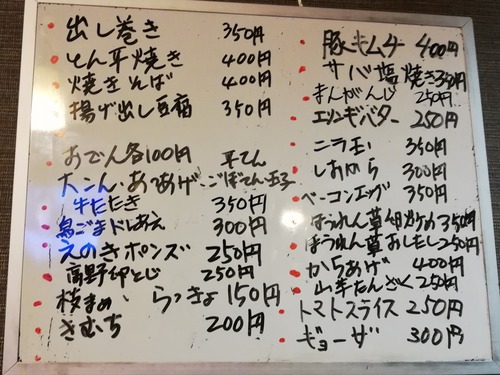 出し巻き 350円
とん平焼き 400円
焼きそば 400円
揚げ出し豆腐 350円
おでん各100円 平てん
大こん・あつあげ・ごぼてん・玉子
牛たたき 350円
鳥ごまドレあえ 300円
えのきポンズ 250円
高野卵とじ 250円
枝まめ らっきょ 150円
きむち 200円
豚キムチ 400円
サバ塩焼き 350円
まんがんじ 250円
エリンギバター 250円
ニラ玉 350円
しおから 300円
ベーコンエッグ 350円
ほうれん草 350円
ほうれん草おしたし 250円
からあげ 400円
山芋たんざく 250円
トマトスライス 250円
ギョーザ 300円